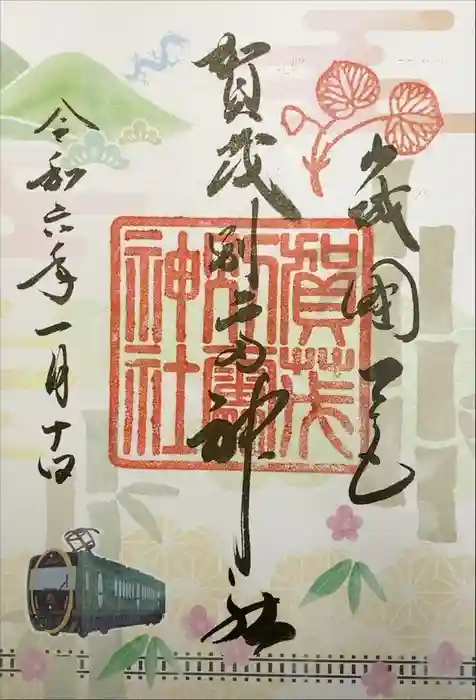 山城國一之宮
賀茂別雷神社
賀茂
別雷
神社
令和六年一月十日